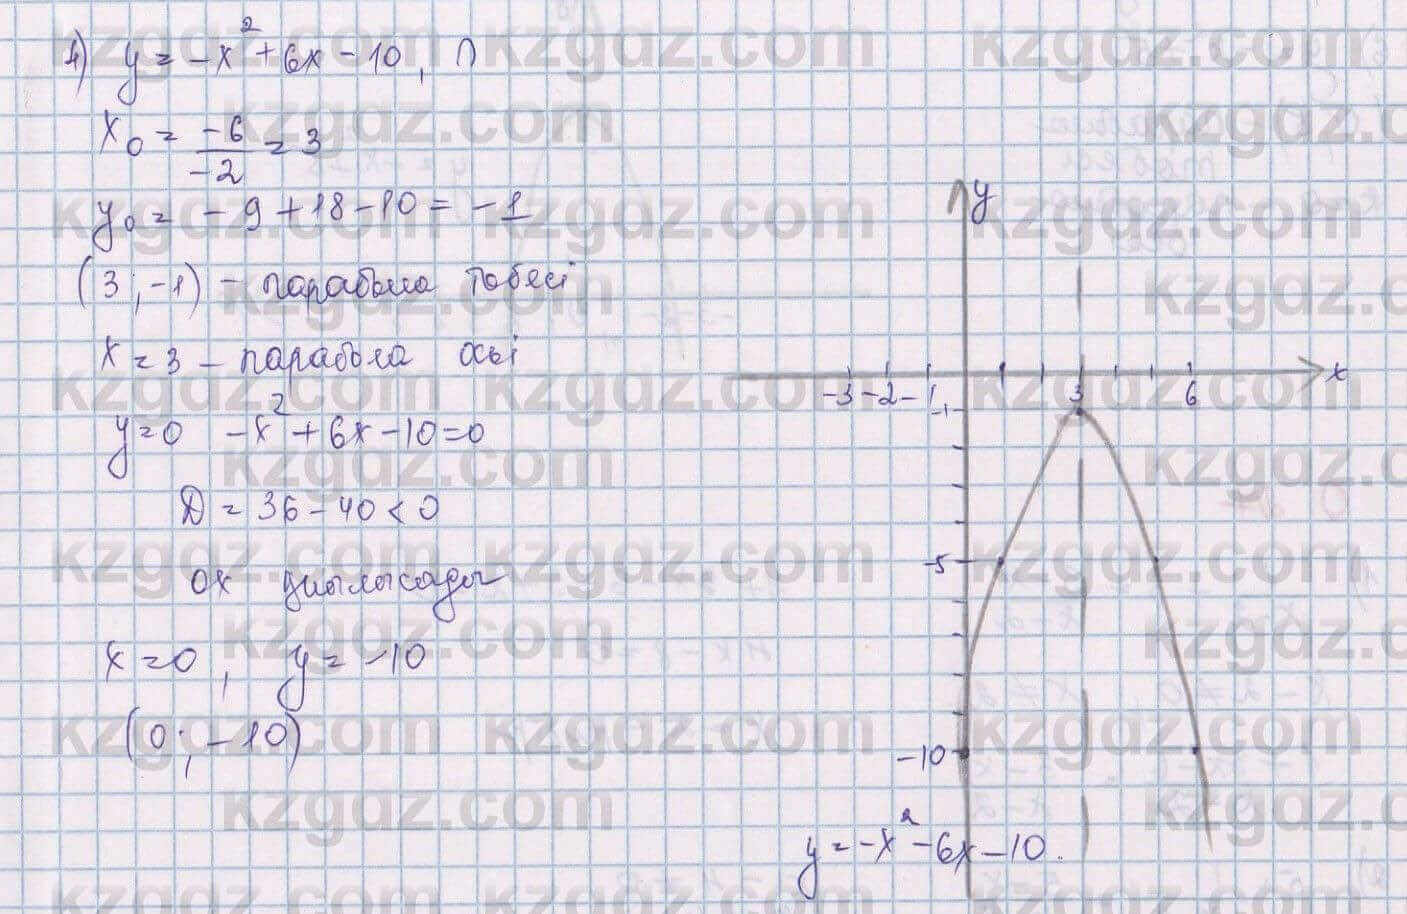 4) y = -x² + 6x - 10, ∩
x₀ = -6/-2 = 3
y₀ = -9 + 18 - 10 = -1
(3; -1) - парабола төбесі
x = 3 - парабола осьі
y = 0 -x² + 6x - 10 = 0
D = 36 - 40 < 0
ox
x = 0, y = -10
(0; -10)
y
x
-3 -2 -1 3 6
-1
-5
-10
y = -x² - 6x - 10.
kzgdz.com